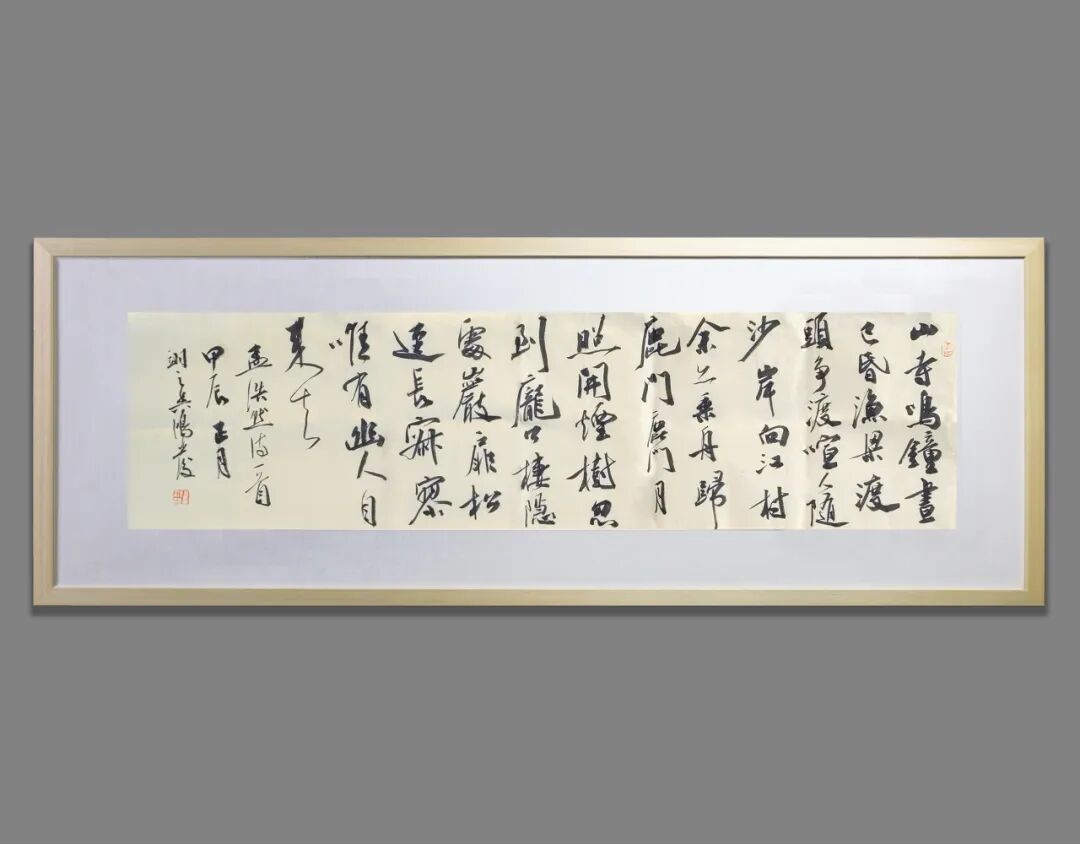 山寺鳴鐘晝
已昏漁梁渡
頭争渡喧人隨
沙岸向江村
余亦乘舟歸
鹿門鹿門月
照開煙樹忽
到龐公棲隱
處巖扉松
逕長寂寥
唯有幽人自
来去
孟浩然诗一首
甲辰正月